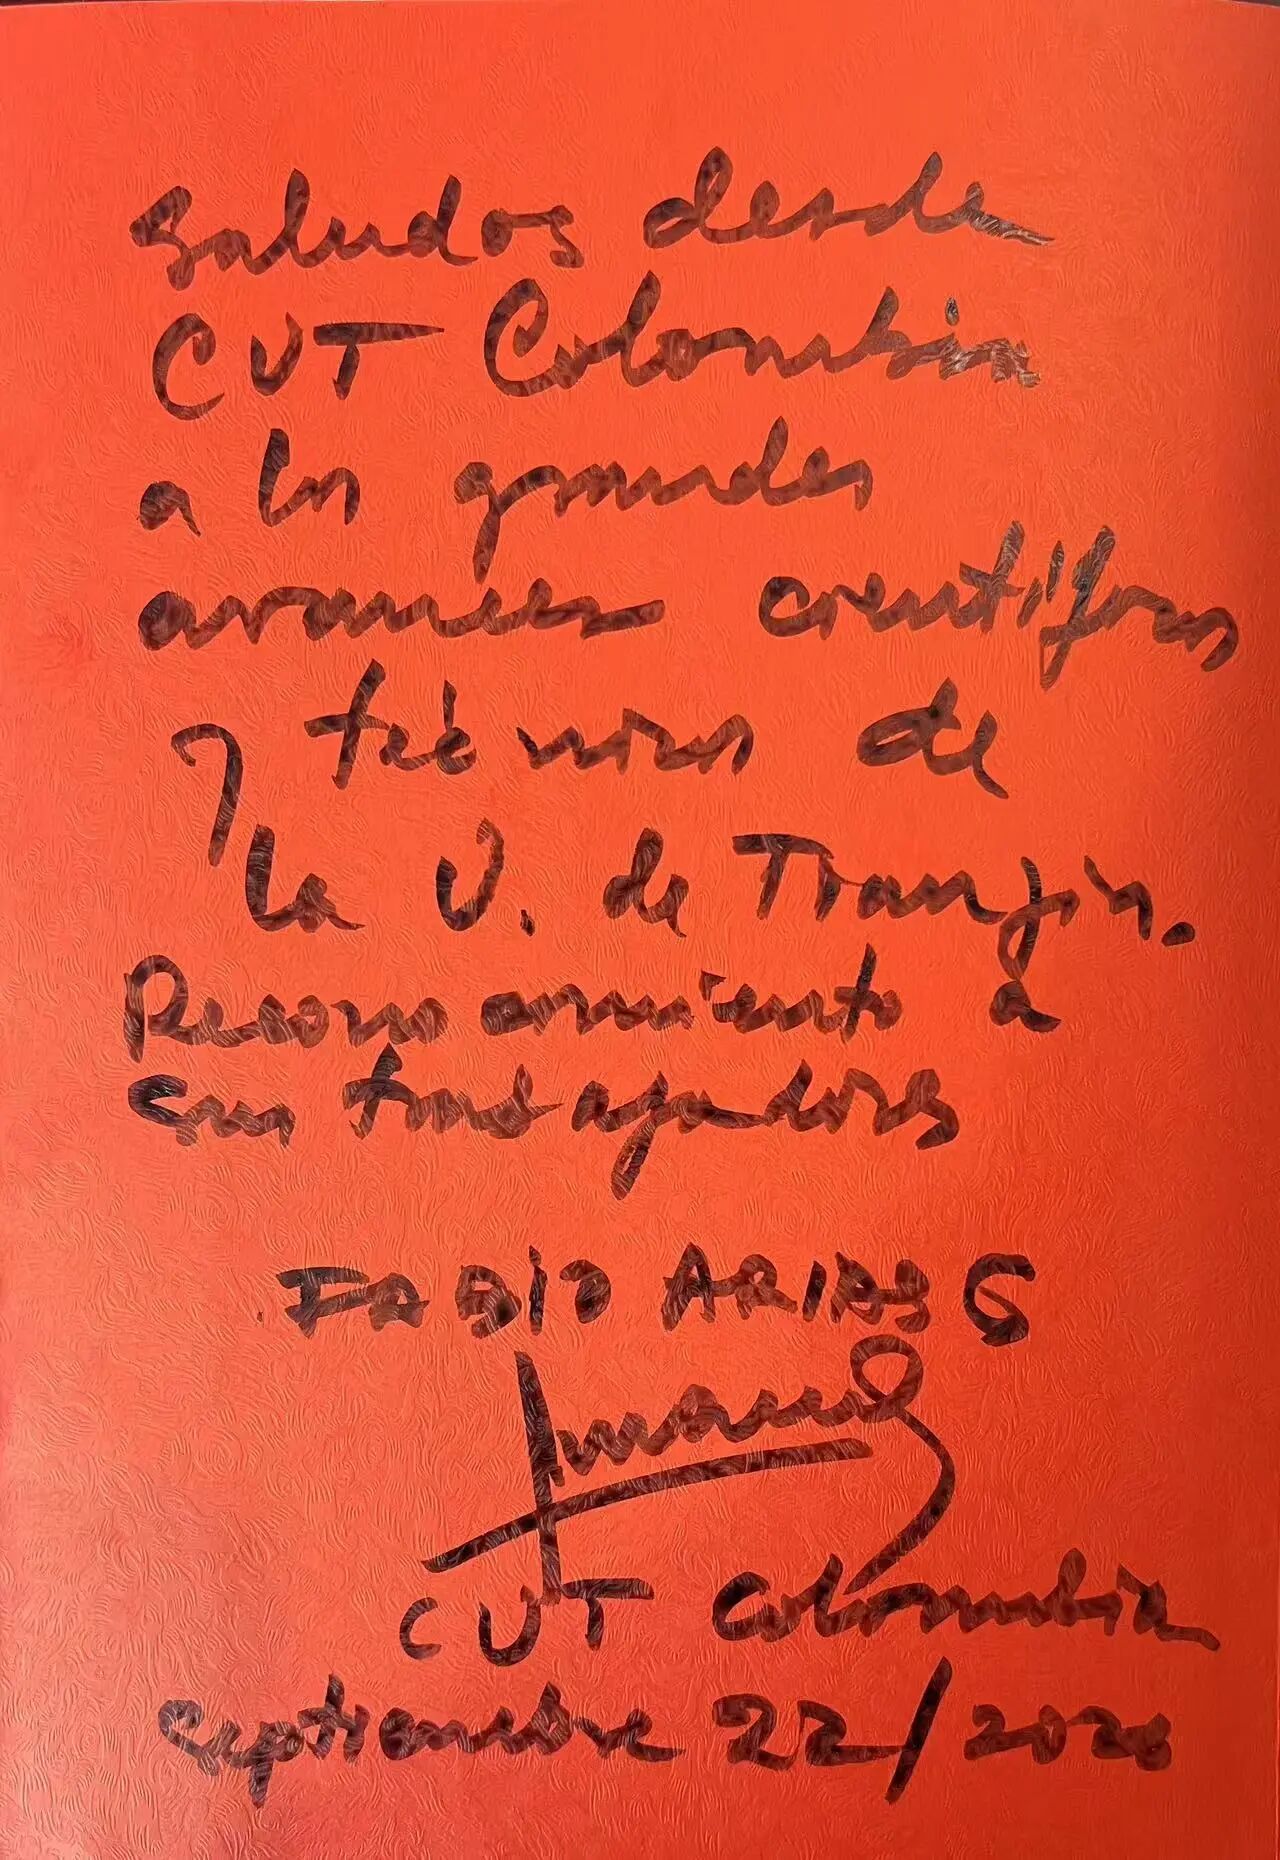 Saludos desde
CUT Colombia
a los grandes
avances científicos
y técnicos de
la U. de Tianjin.
Reconocimiento a
sus trabajadores
FABIO ARIAS G
CUT Colombia
septiembre 22/